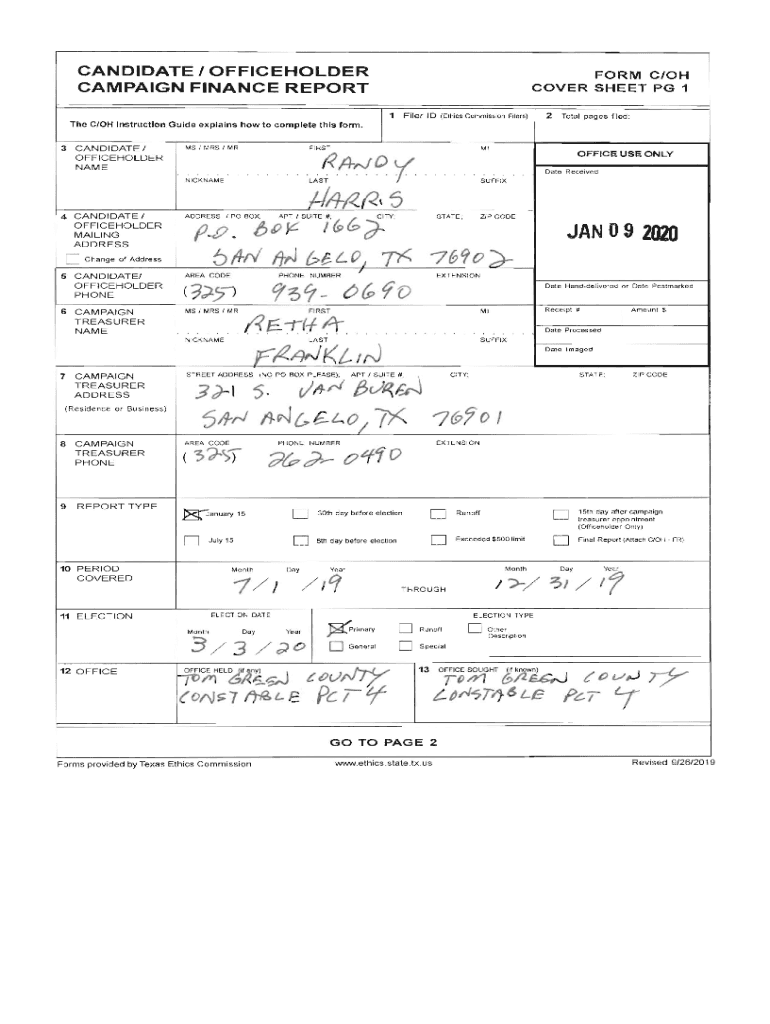 CANDIDATE / OFFICEHOLDER
CAMPAIGN FINANCE REPORT
FORM C/OH
COVER SHEET PG 1
The C/OH Instruction Guide explains how to complete this form.
1 Filer ID (Ethics Commission Filers)
2 Total pages filed:
3 CANDIDATE / OFFICEHOLDER NAME
MS / MRS / MR FIRST MI
RANDY
NICKNAME LAST SUFFIX
HARRIS
OFFICE USE ONLY
Date Received
JAN 09 2020
4 CANDIDATE / OFFICEHOLDER MAILING ADDRESS
Change of Address
ADDRESS / PO BOX; APT / SUITE #; CITY; STATE; ZIP CODE
P.O. BOX 1662
SAN ANGELO, TX 76902
5 CANDIDATE/ OFFICEHOLDER PHONE
AREA CODE PHONE NUMBER EXTENSION
(325) 939-0690
Date Hand-delivered or Date Postmarked
6 CAMPAIGN TREASURER NAME
MS / MRS / MR FIRST MI
RETHA
NICKNAME LAST SUFFIX
FRANKLIN
Receipt # Amount $
Date Processed
Date Imaged
7 CAMPAIGN TREASURER ADDRESS
(Residence or Business)
STREET ADDRESS (NO PO BOX PLEASE); APT / SUITE #; CITY; STATE; ZIP CODE
321 S. VAN BUREN
SAN ANGELO, TX 76901
8 CAMPAIGN TREASURER PHONE
AREA CODE PHONE NUMBER EXTENSION
(325) 262-0490
9 REPORT TYPE
January 15 30th day before election Runoff 15th day after campaign treasurer appointment (Officeholder Only)
July 15 8th day before election Exceeded $500 limit Final Report (Attach C/OH - FR)
10 PERIOD COVERED
Month Day Year Month Day Year
7/1/19 THROUGH 12/31/19
11 ELECTION
ELECTION DATE ELECTION TYPE
Month Day Year
3/3/20
Primary Runoff Other Description
General Special
12 OFFICE
OFFICE HELD (if any)
TOM GREEN COUNTY
CONSTABLE PCT 4
13 OFFICE SOUGHT (if known)
TOM GREEN COUNTY
CONSTABLE PCT 4
GO TO PAGE 2
Forms provided by Texas Ethics Commission www.ethics.state.tx.us Revised 9/26/2019